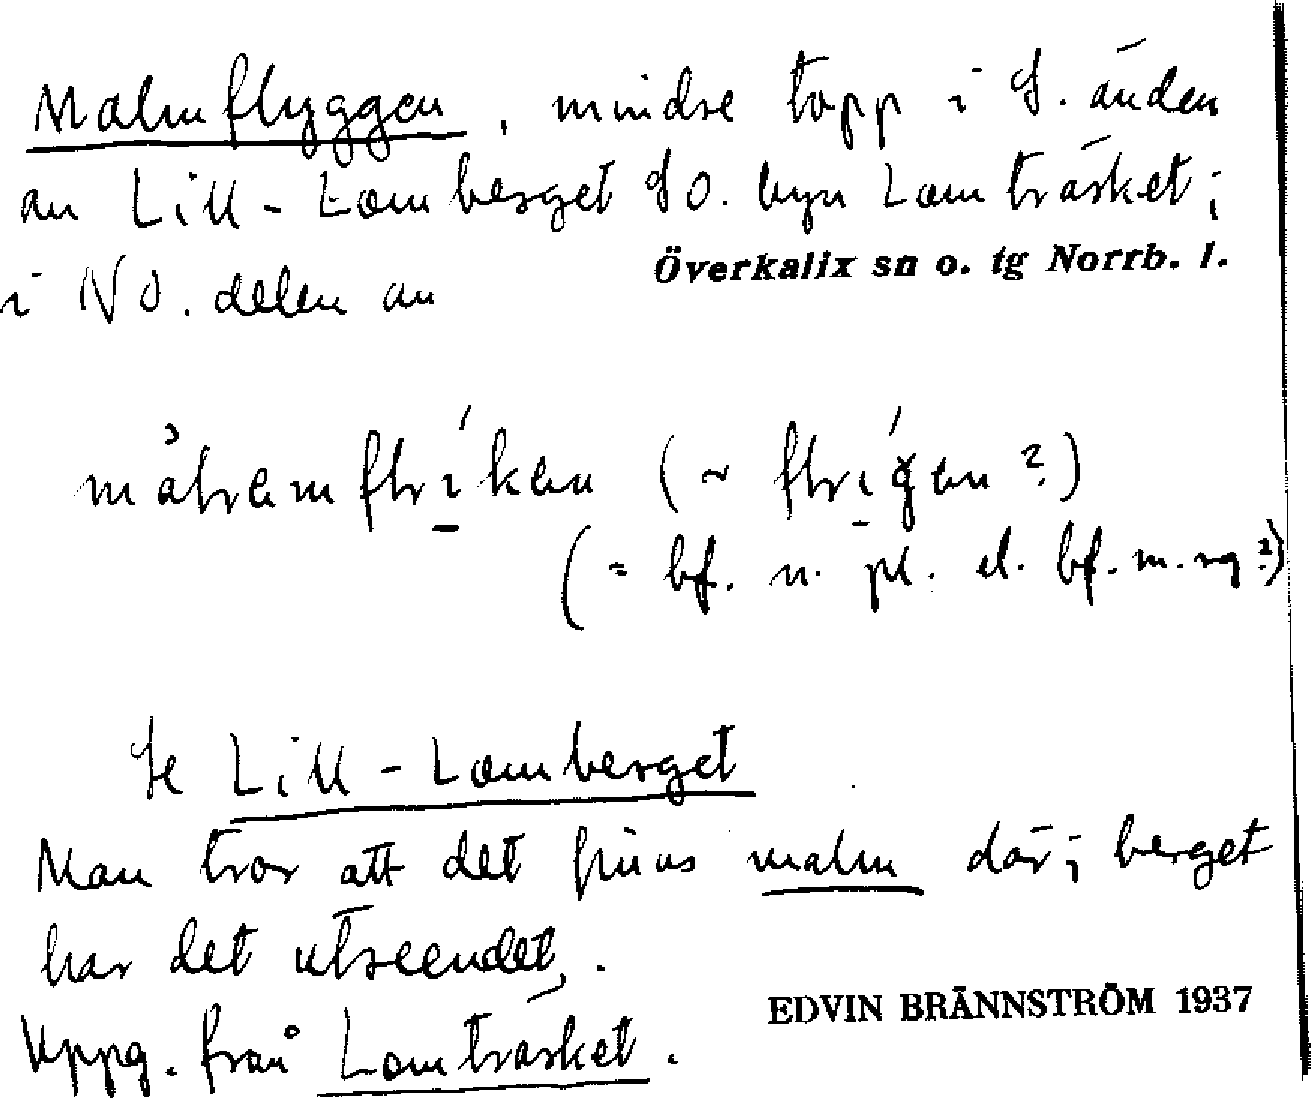 Malmflyggen, mindre topp i S. änden
av Lill-Lomberget SO. byn Lomträsket;
Överkalix sn o. tg Norrb. l.
i NO. delen av
(~
(= bf. n. pl. el. bf. m. sg?)
Se Lill-Lomberget
Man tror att det finns malm där; berget
har det utseendet.
Uppg. från Lomträsket.
EDVIN BRÄNNSTRÖM 1937